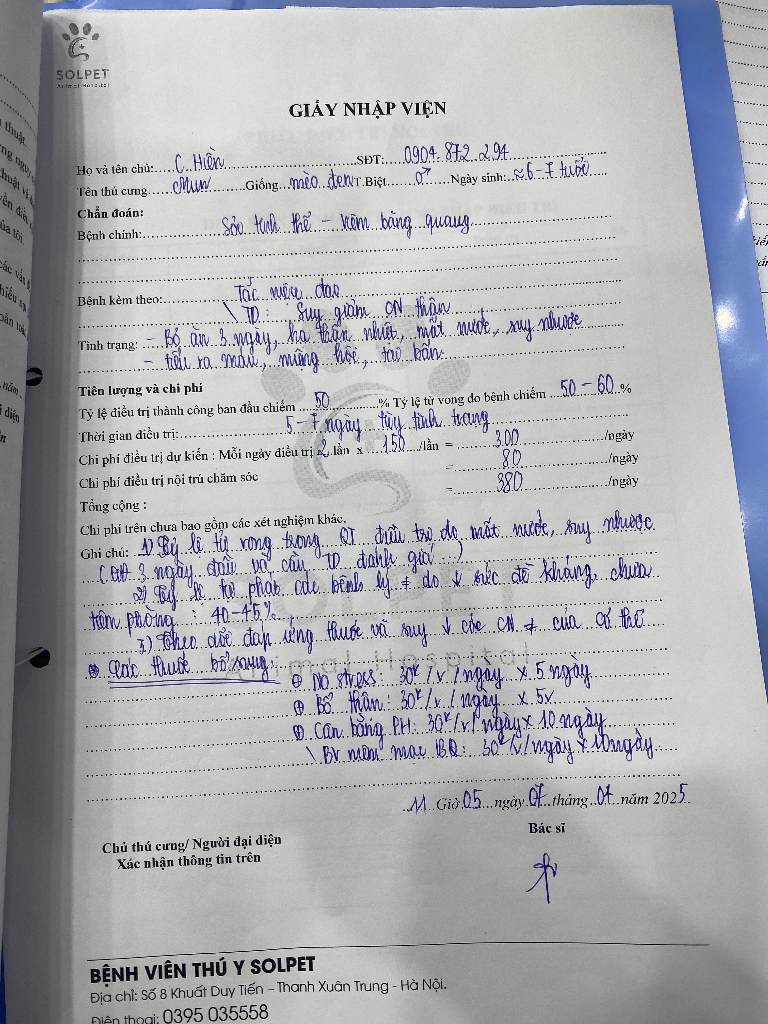 SOLPET
Animal Hospital
GIẤY NHẬP VIỆN
Họ và tên chủ:.....C. Hiền.....SĐT:.....0904.872.294
Tên thú cưng.....Mun.....Giống.....mèo đen T.Biệt.....♂.....Ngày sinh:..≈6-7 tuổi
Chẩn đoán:
Bệnh chính:.....Sỏi tinh thể - viêm bàng quang
Bệnh kèm theo:.....Tắc niệu đạo
\ TD: Suy giảm CN thận
Tình trạng: - Bỏ ăn 3 ngày, hạ thân nhiệt, mất nước, suy nhược
- tiểu ra máu, miệng hôi, táo bón
Tiên lượng và chi phí
Tỷ lệ điều trị thành công ban đầu chiếm ...50.....% Tỷ lệ tử vong do bệnh chiếm ..50-60..%
Thời gian điều trị:.....5-7 ngày tùy tình trạng
Chi phí điều trị dự kiến : Mỗi ngày điều trị 2 lần x ....150..../lần = .....300...../ngày
Chi phí điều trị nội trú chăm sóc =.....80...../ngày
Tổng cộng : =.....380...../ngày
Chi phí trên chưa bao gồm các xét nghiệm khác.
Ghi chú: 1) Tỷ lệ tử vong trong QT điều trị do mất nước, suy nhược
3 ngày đầu và cần TD đánh giá...)
2) Tỷ lệ tự phát các bệnh lý ≠ do ↓ sức đề kháng, chưa
tiêm phòng : 40-45%
3) Theo dõi đáp ứng thuốc và suy ↓ các CN ≠ của cơ thể
⊕ Các thuốc bổ sung:
⊕ No stress: 30k/v/ngày x 5 ngày
⊕ Bổ thận: 30k/v/ngày x 5v
⊕ Cân bằng PH: 30k/v/ngày x 10 ngày
\ Bv niêm mạc BQ: 30k/v/ngày x 10 ngày
..11..Giờ 05...ngày 07..tháng..04..năm 2025.
Chủ thú cưng/ Người đại diện
Xác nhận thông tin trên
Bác sĩ
BỆNH VIỆN THÚ Y SOLPET
Địa chỉ: Số 8 Khuất Duy Tiến – Thanh Xuân Trung - Hà Nội.
Điện thoại: 0395 035558